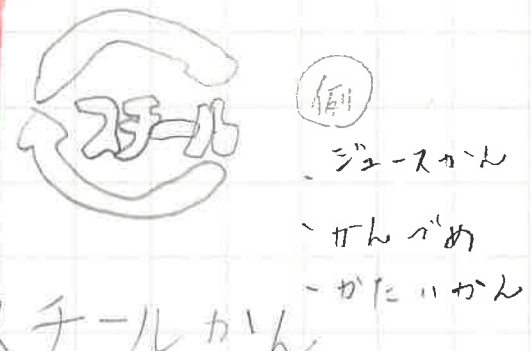 スチール
例
・ジュースかん
・かんづめ
・かたいかん
スチールかん